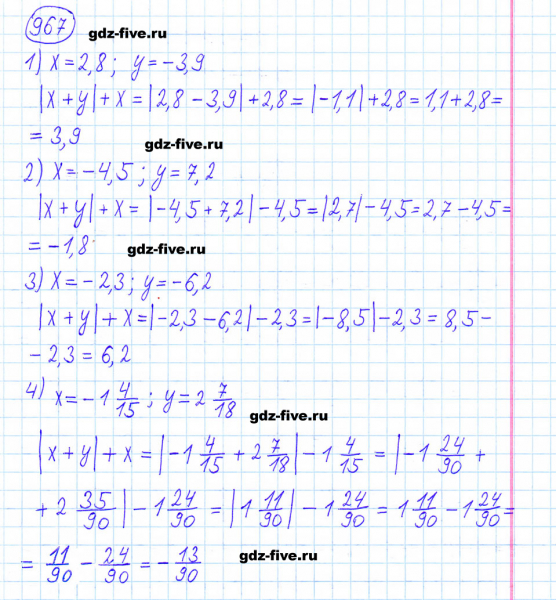 967 gdz-five.ru
1) x = 2,8; y = -3,9
|x + y| + x = |2,8 - 3,9| + 2,8 = |-1,1| + 2,8 = 1,1 + 2,8 =
= 3,9 gdz-five.ru
2) x = -4,5; y = 7,2
|x + y| + x = |-4,5 + 7,2| - 4,5 = |2,7| - 4,5 = 2,7 - 4,5 =
= -1,8 gdz-five.ru
3) x = -2,3; y = -6,2
|x + y| + x = |-2,3 - 6,2| - 2,3 = |-8,5| - 2,3 = 8,5 -
- 2,3 = 6,2
4) x = -1 4/15; y = 2 7/18 gdz-five.ru
|x + y| + x = |-1 4/15 + 2 7/18| - 1 4/15 = |-1 24/90 +
+ 2 35/90| - 1 24/90 = |1 11/90| - 1 24/90 = 1 11/90 - 1 24/90 =
= 11/90 - 24/90 = -13/90 gdz-five.ru